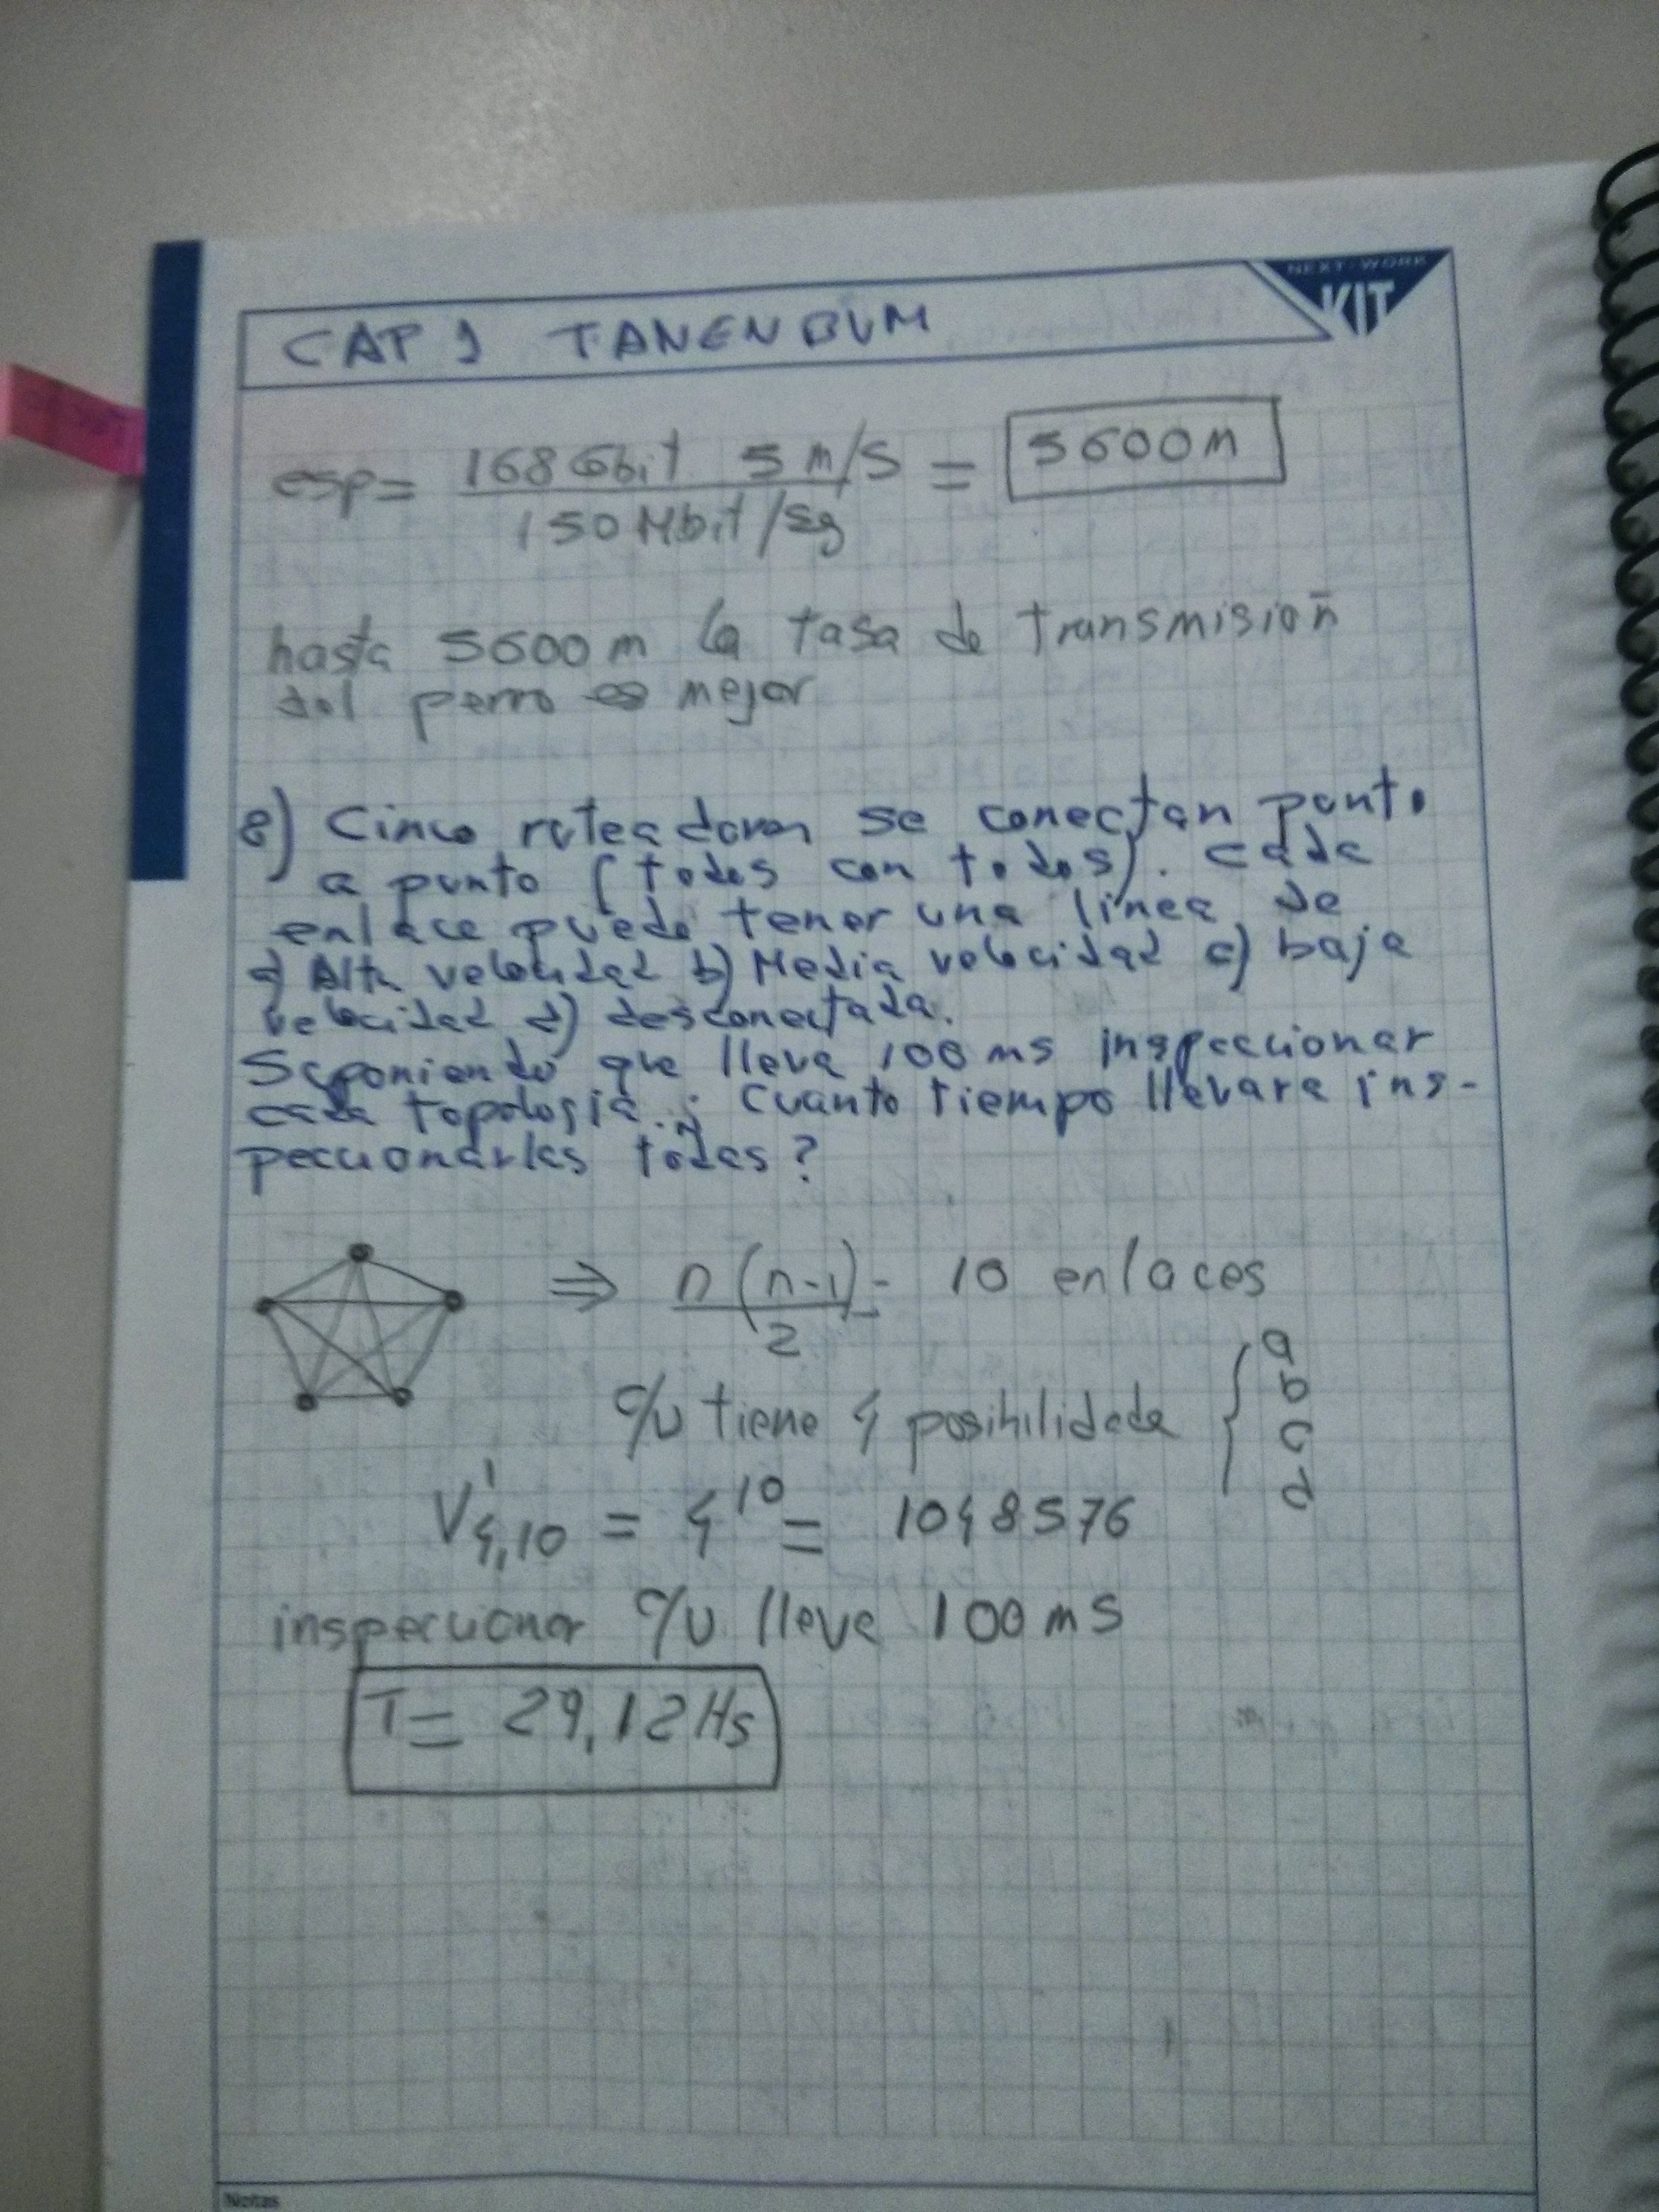 NEXT-WORK
KIT
CAP 1 TANENBUM
esp= 168 Gbit 5 m/s / 150 Mbit/sg = 5600m
hasta 5600 m la tasa de transmisioñ
del perro es mejor
8) Cinco ruteadores se conectan punto
a punto (todos con todos). Cada
enlace puede tener una linea de
a) Alta velocidad b) Media velocidad c) baja
velocidad d) desconectada.
Suponiendo que lleva 100 ms inspeccionar
cada topologia. ¿Cuanto tiempo llevara ins-
peccionarlas todas?
⇒ n(n-1)/2 = 10 enlaces
c/u tiene 4 posibilidade { a
b
c
d
V'4,10 = 4^10 = 1048576
inspeccionar c/u lleva 100 ms
T= 29,12 Hs
Notas